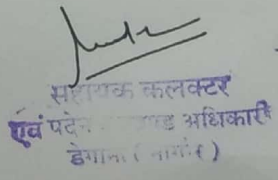 सहायक कलक्टर
एवं पदेन अधिकारी
डेगाना (नागौर)